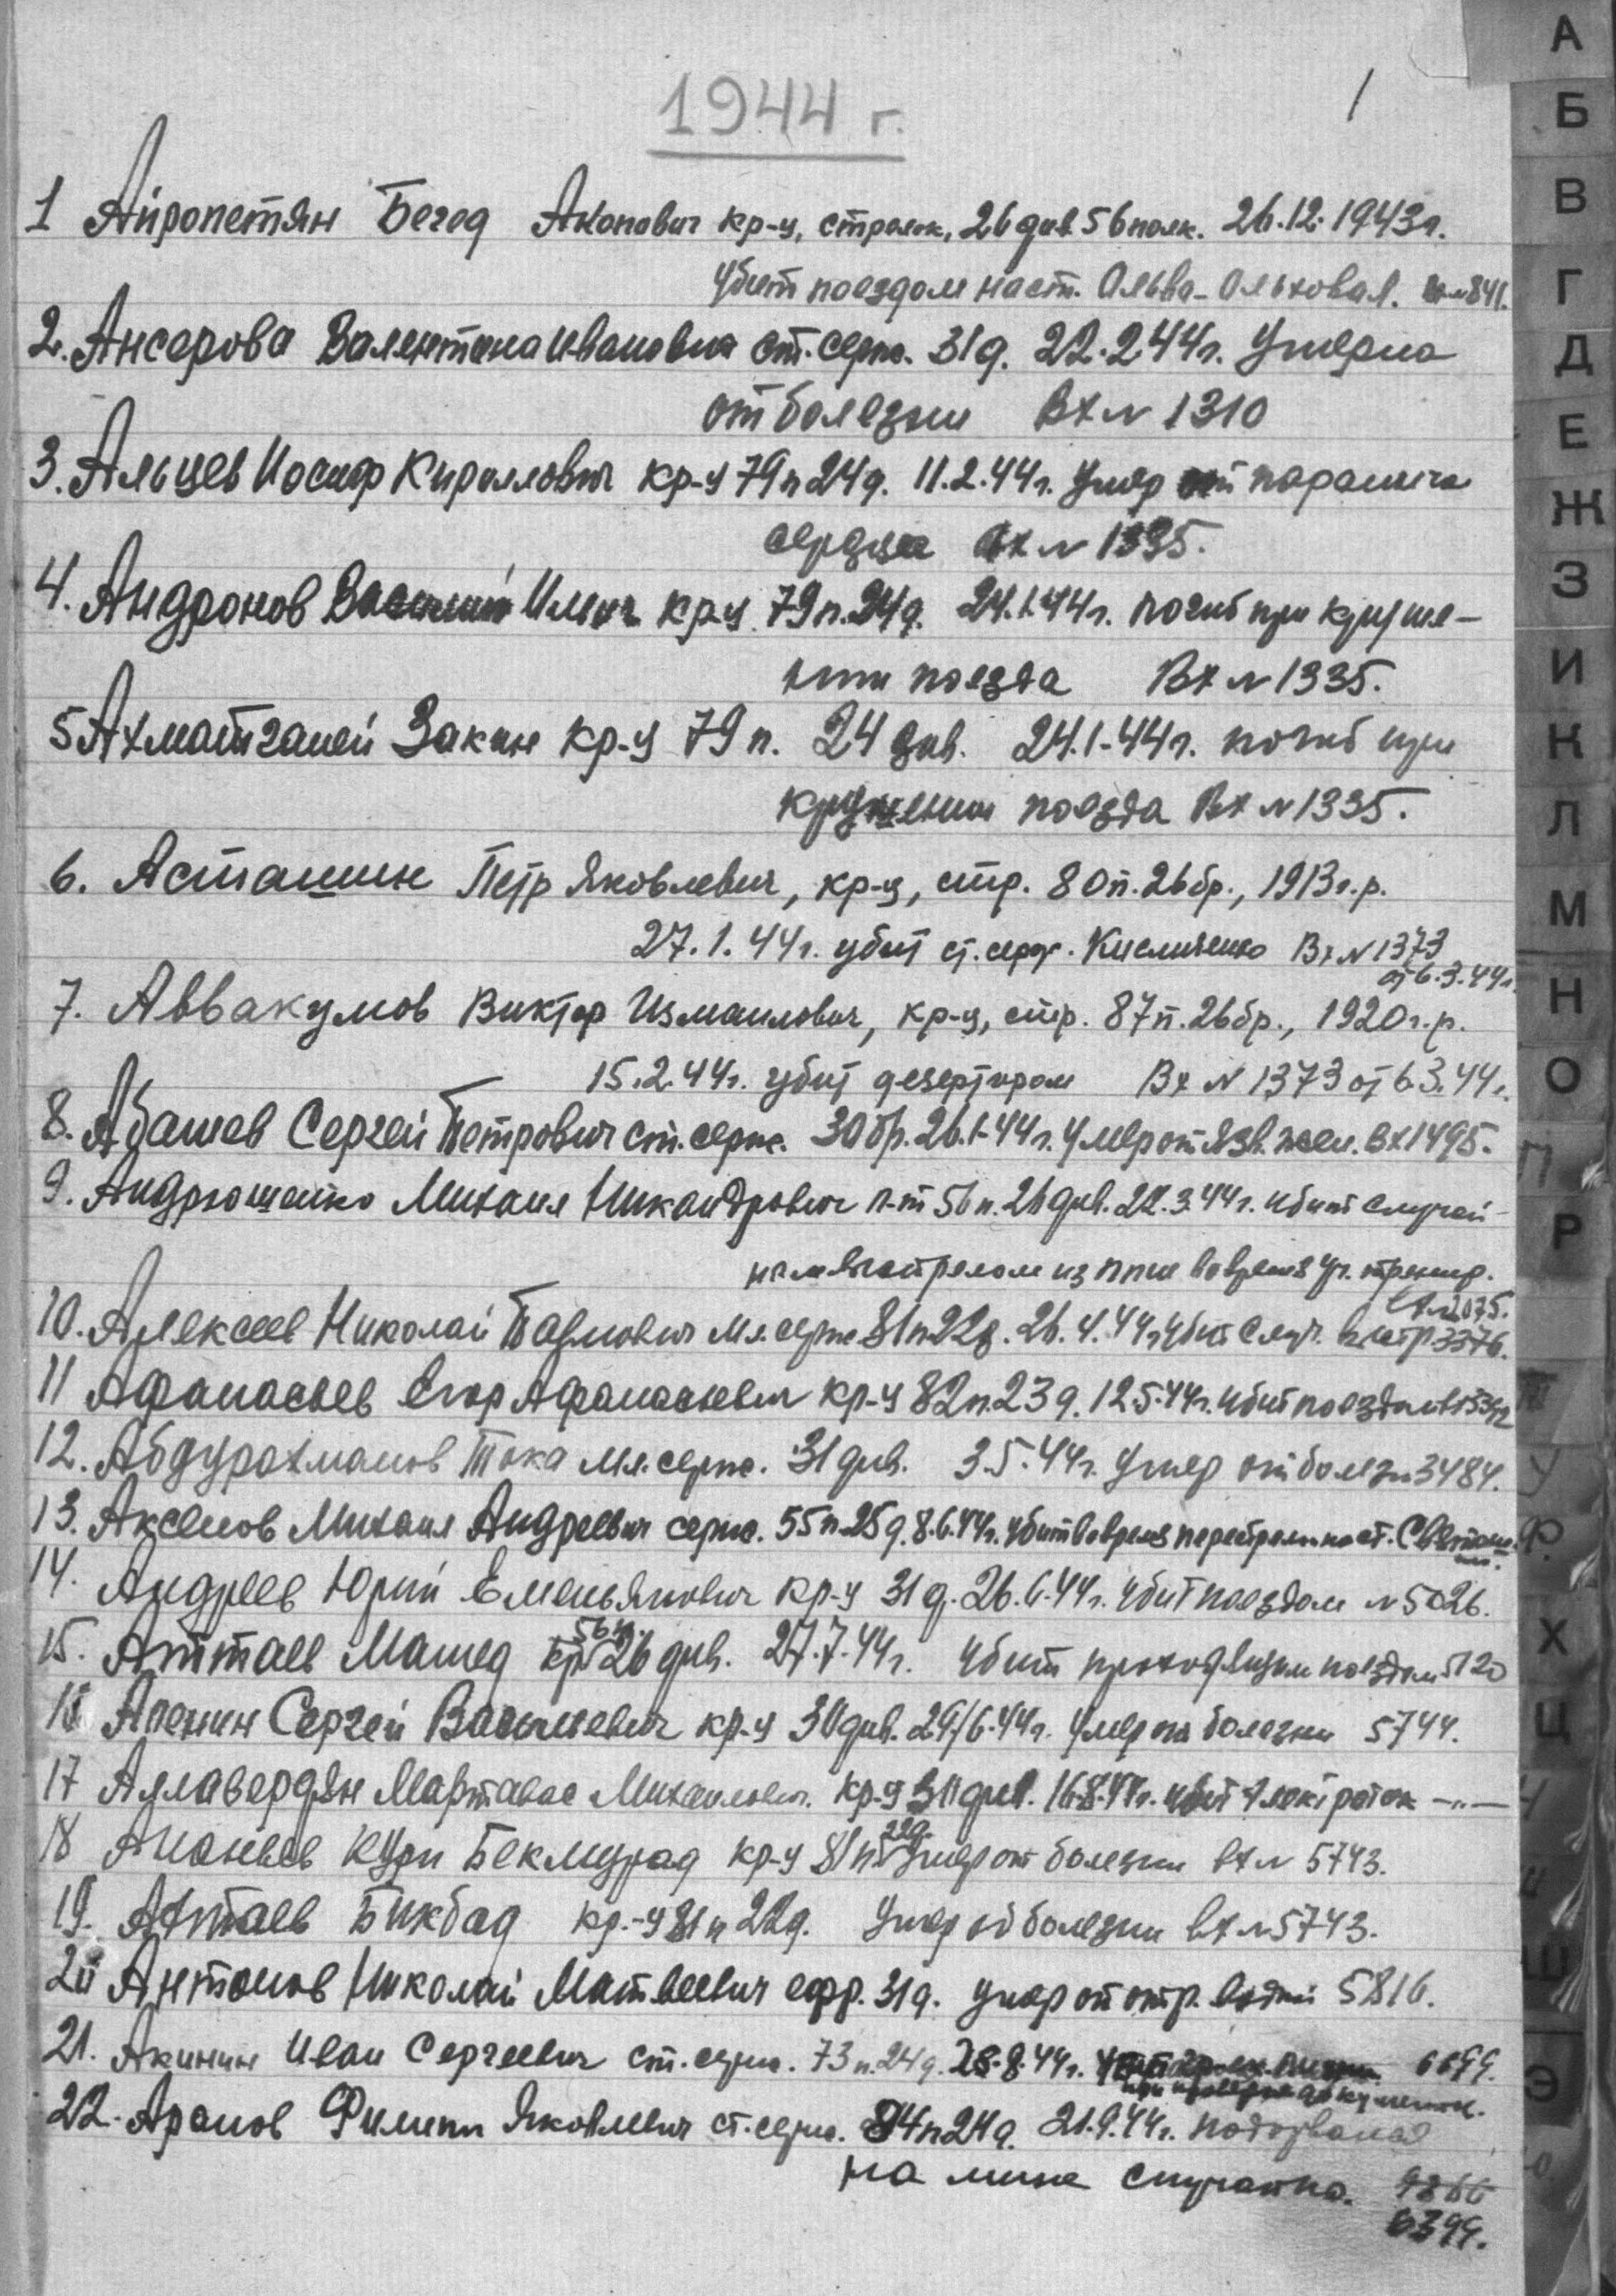 1944 г.
1
1 Айропетян Бегед Акопович кр-ц, стрелок, 26 див 56 полк. 26.12.1943г.
убит поездом на ст. Ольховая. 841.
2. Ансерова Валентина Ивановна ст. серж. 31 д. 22.2.44г. Умерла
от болезни Вх N 1310
3. Альцев Иосиф Кириллович кр-ц 79 п 24 д. 11.2.44г. Умер от паралича
сердца Вх N 1335.
4. Андронов Василий Ильич кр-ц 79 п. 24 д. 24.1.44г. погиб при круше-
нии поезда Вх N 1335.
5 Ахматганей Закин кр-ц 79 п. 24 див. 24.1-44г. погиб при
крушении поезда Вх N 1335.
6. Асташин Петр Яковлевич, кр-ц, стр. 80 п. 26 бр., 1913 г.р.
27.1.44г. убит ст. серж. Кисличенко Вх N 1373
от 6.3.44г.
7. Аввакумов Виктор Измаилович, кр-ц, стр. 87 п. 26 бр., 1920 г.р.
15.2.44г. убит дезертиром Вх N 1373 от 6.3.44г.
8. Абашев Сергей Петрович ст. серж. 30 бр. 26.1-44г. Умер от язв. жел. Вх 1495.
9. Андрющенко Михаил Никандрович л-т 56 п. 26 див. 22.3.44г. Убит случай-
ным выстрелом из ППШ во время уч. тренир.
Вх N 2075.
10. Алексеев Николай Павлович мл. серж. 81 п 22 д. 26.4.44г. убит случ. выстр. 3376.
11 Афанасьев Егор Афанасьевич кр-ц 82 п. 23 д. 12.5.44г. убит поездом
12. Абдурахманов Тока мл. серж. 31 див. 3.5.44г. Умер от болезн 3484.
13. Аксенов Михаил Андреевич серж. 55 п. 25 д. 8.6.44г. убит во время перестрелки на ст.
14. Андреев Юрий Емельянович кр-ц 31 д. 26.6.44г. Убит поездом N 5026.
56 п.
15. Аттаев Машед кр 26 див. 27.7.44г. Убит проходящим поездом 5120
16 Апенин Сергей Васильевич кр-ц 30 див. 29/6-44г. Умер от болезни 5744.
17 Аллавердян Мартавас Михайлович. кр-ц 31 див. 16.8.44г. убит электроток -"-
22 д.
18 Ананьев Кури Бекмурад кр-ц 81 п Умер от болезни вх N 5743.
19. Ахтаев Бикбад кр-ц 81 п 22 д. Умер от болезни вх N 5743.
20 Антонов Николай Матвеевич ефр. 31 д. Умер от отр. 5816.
21. Акинин Иван Сергеевич ст. серж. 73 п. 24 д. 28.8.44г. 6199.
при проверке документов.
22. Арапов Филипп Яковлевич ст. серж. 84 п 24 д. 21.9.44г. подорвался
на мине случайно. 9366
6399.
А
Б
В
Г
Д
Е
Ж
З
И
К
Л
М
Н
О
П
Р
Т
У
Ф
Х
Ц
Ч
Ш
Э
Ю